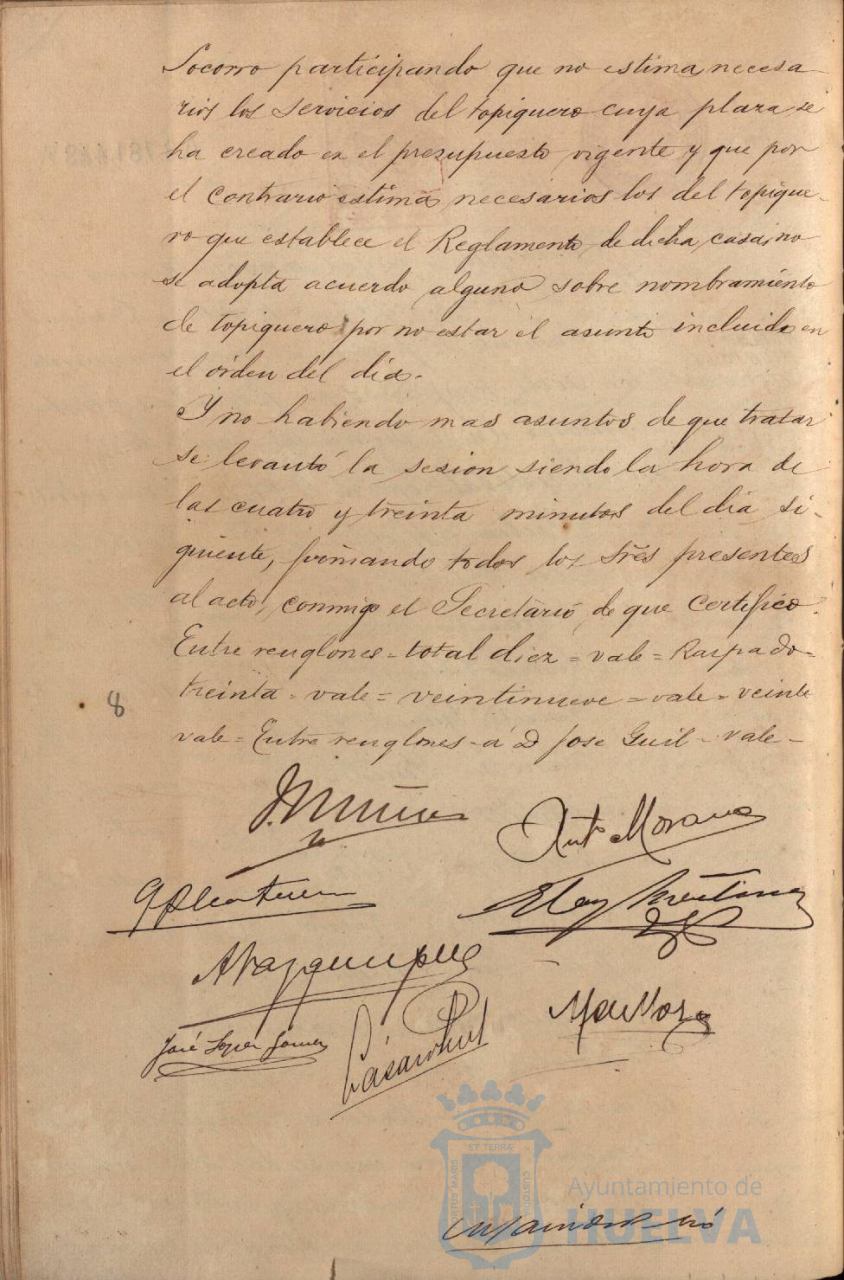 Socorro participando que no estima necesa-
rios los servicios del topiquero cuya plaza se
ha creado en el presupuesto vigente y que por
el contrario estima necesarios los del topique-
ro que establece el Reglamento de dicha casa, no
se adopta acuerdo alguno sobre nombramiento
de topiquero por no estar el asunto incluido en
el orden del dia.
Y no habiendo mas asuntos de que tratar
se levantó la sesion siendo la hora de
las cuatro y treinta minutos del dia si-
guiente, firmando todos los Sres presentes
al acto, conmigo el Secretario, de que certifico.
Entre renglones = total diez = vale = Raspado =
treinta = vale = veintinueve = vale = veinte
vale = Entre renglones - á D Jose Guil - vale -
8
Antº Morano
José Lopez Gomez
Ayuntamiento de
HUELVA